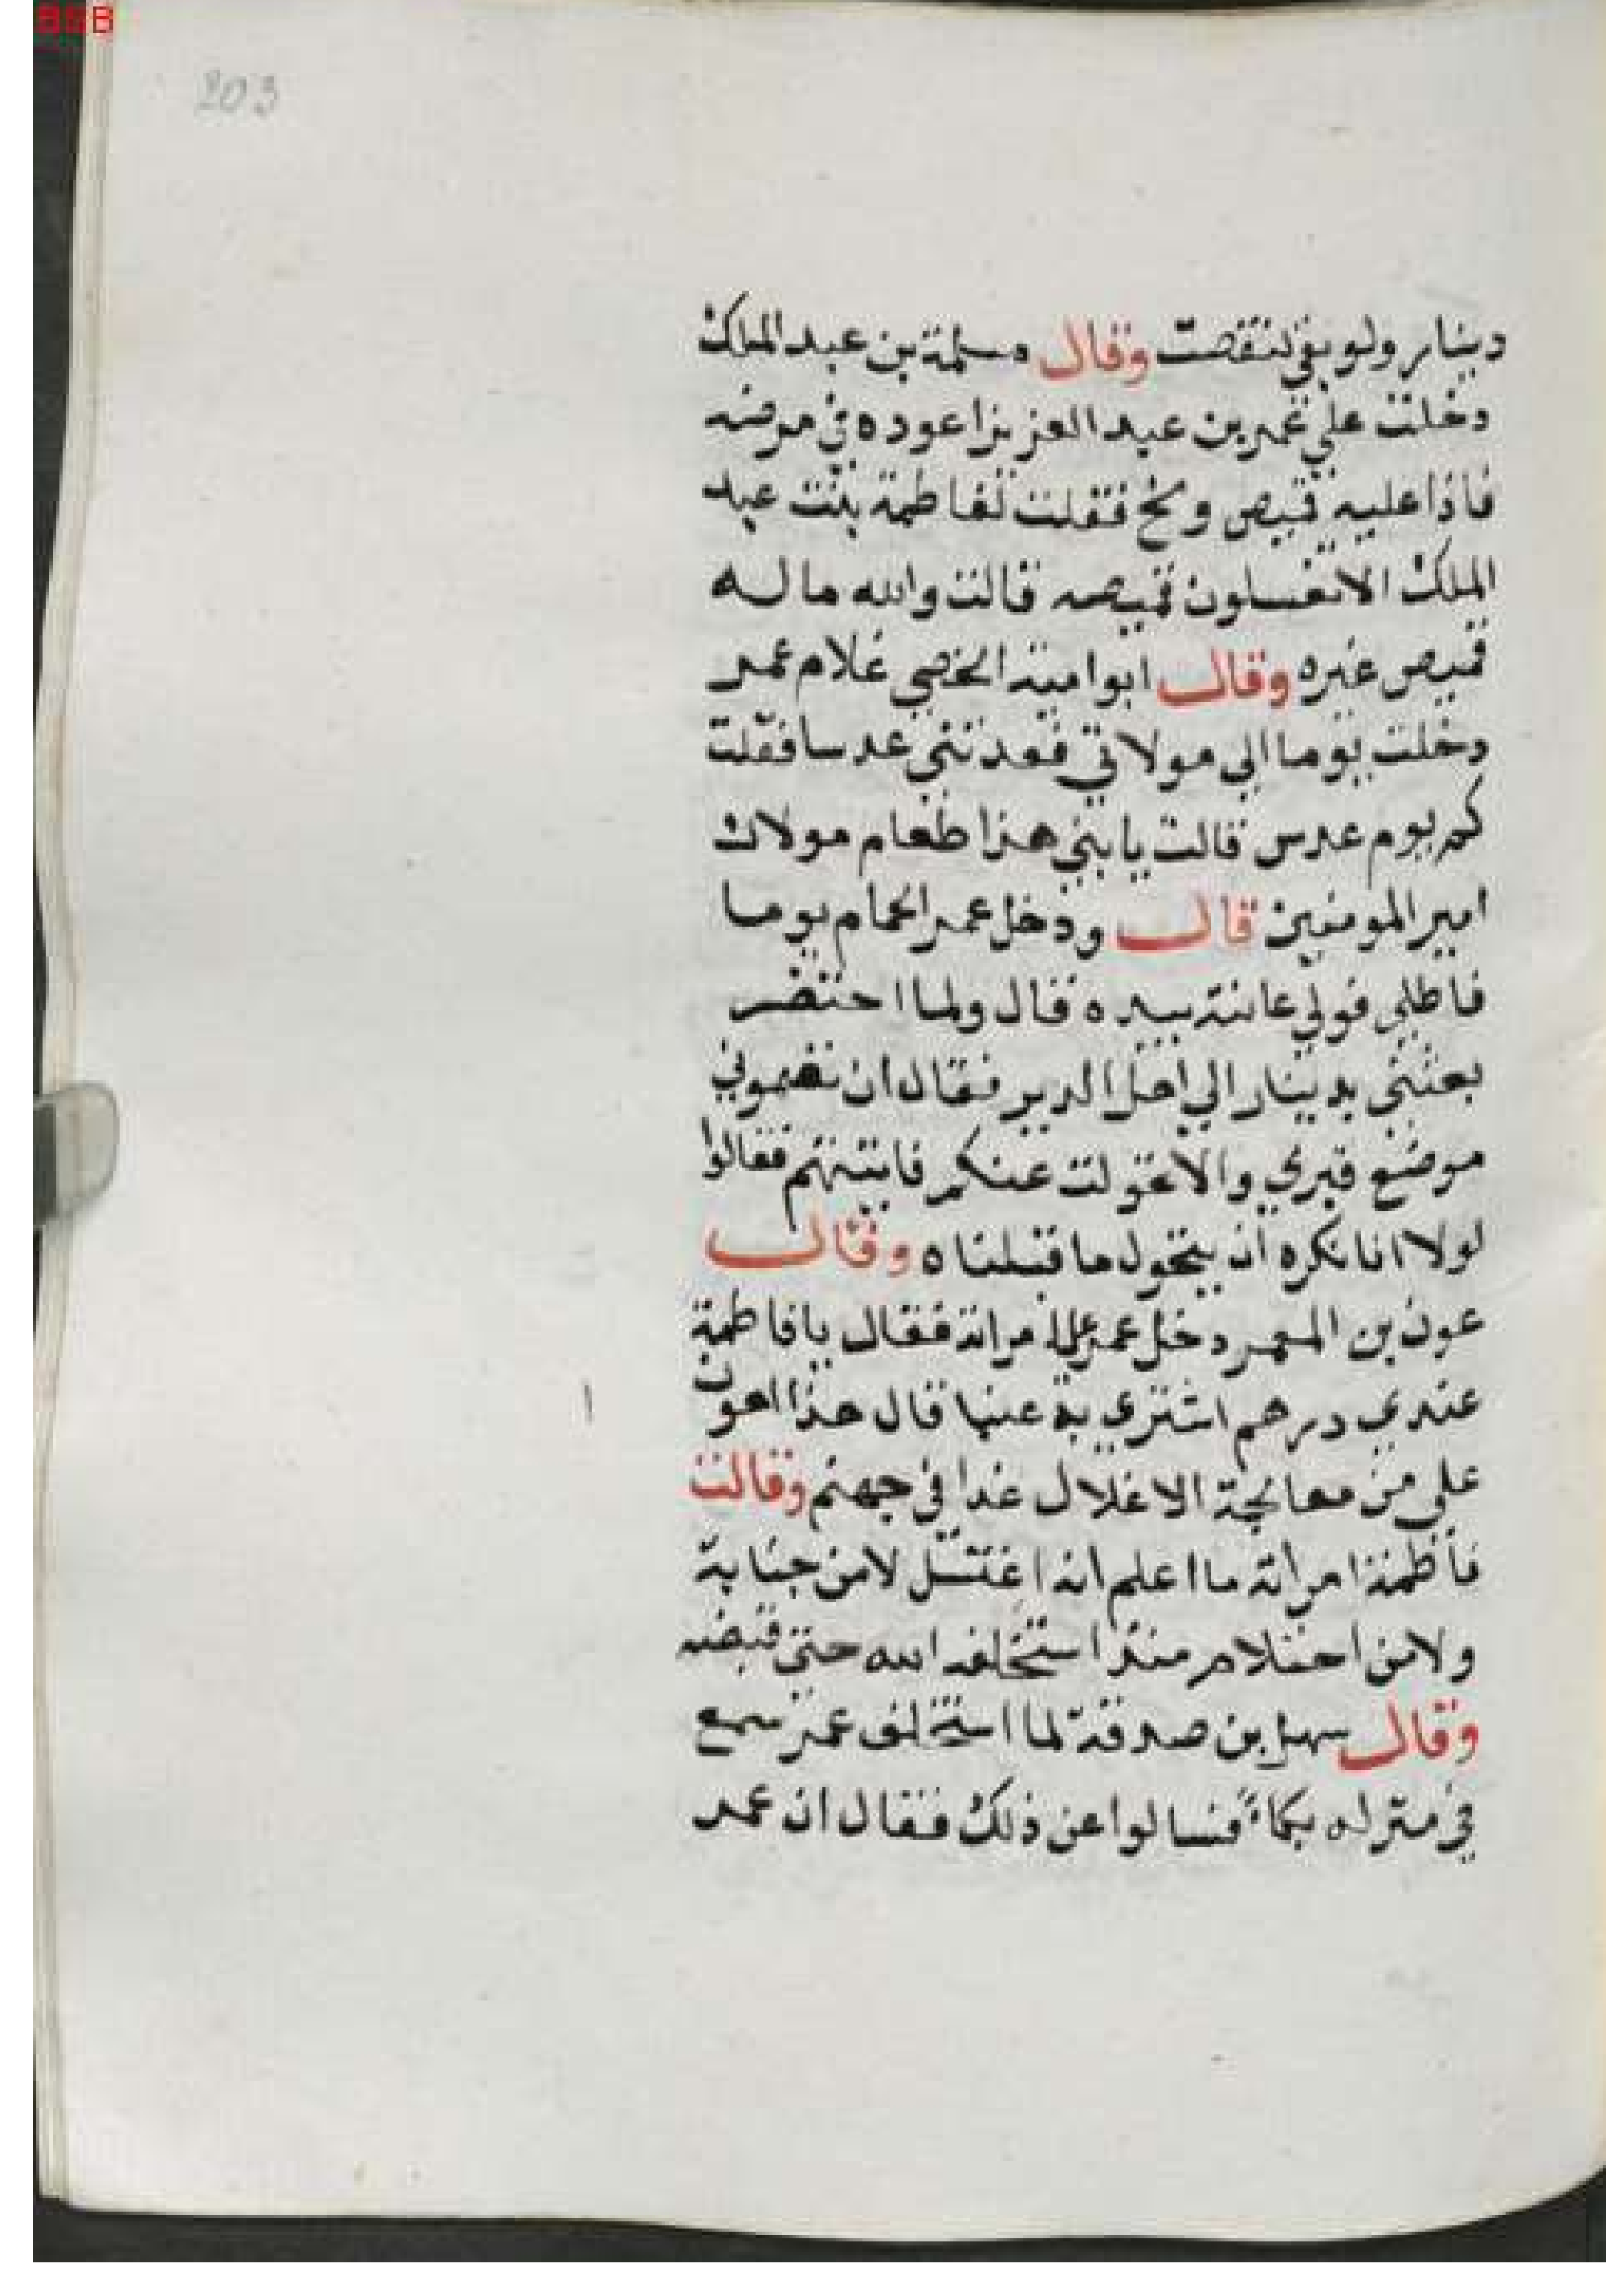 203
دينار ولو بقي لنقصت وقال مسلمة بن عبد الملك
دخلت علي عمر بن عبد العزيز اعوده في مرضه
فاذا عليه قميص وسخ فقلت لفاطمة بنت عبد
الملك الا تغسلون قميصه قالت والله ما له
قميص غيره وقال ابو امية الخصي غلام عمر
دخلت يوما الي مولاتي فغدتني عدسا فقلت
كل يوم عدس قالت يا بني هذا طعام مولاك
امير المومنين قال ودخل عمر الحمام يوما
فاطلي فولي عانته بيده قال ولما احتضر
بعثني بدينار الي اهل الدير فقال ان بعتموني
موضع قبري والا تحولت عنكم فاتيتهم فقالوا
لولا انا نكره ان يتحول ما قبلناه وقال
عون بن المعمر دخل عمر علي امراته فقال يا فاطمة
عندك درهم اشتري به عنبا قال هذا اهون
علي من معالجة الاغلال غدا في جهنم وقالت
فاطمة امراته ما اعلم انه اغتسل لا من جنابة
ولا من احتلام منذ استخلفه الله حتي قبضه
وقال سهل بن صدقة لما استخلف عمر سمع
في منزله بكاء فسالوا عن ذلك فقال ان عمر